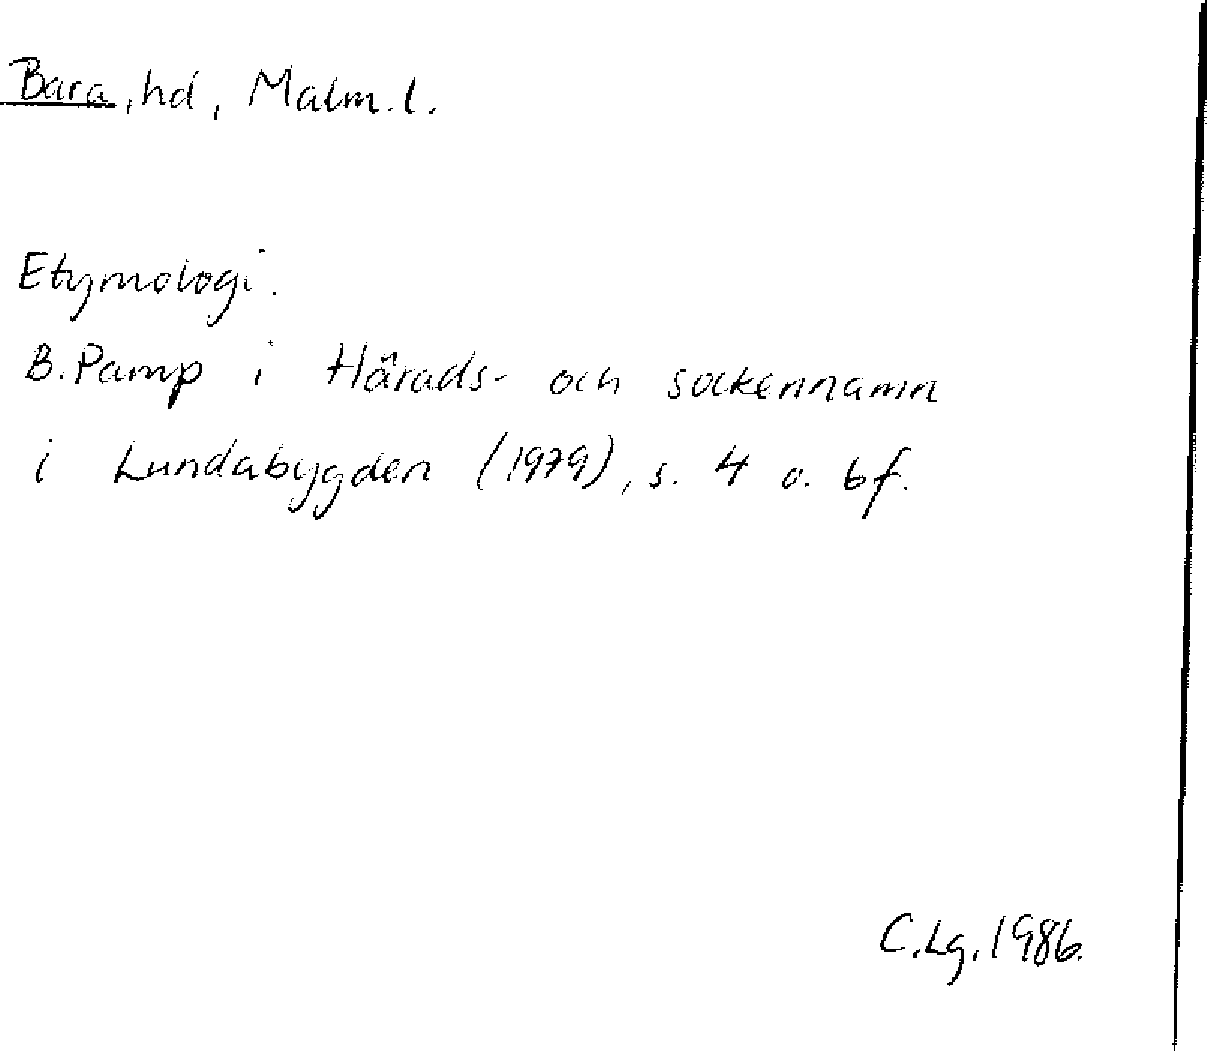 Bara, hd, Malm. l.
Etymologi.
B. Pamp i Härads- och sockennamn
i Lundabygden (1979), s. 4 o. 6f.
C. Lg. 1986.